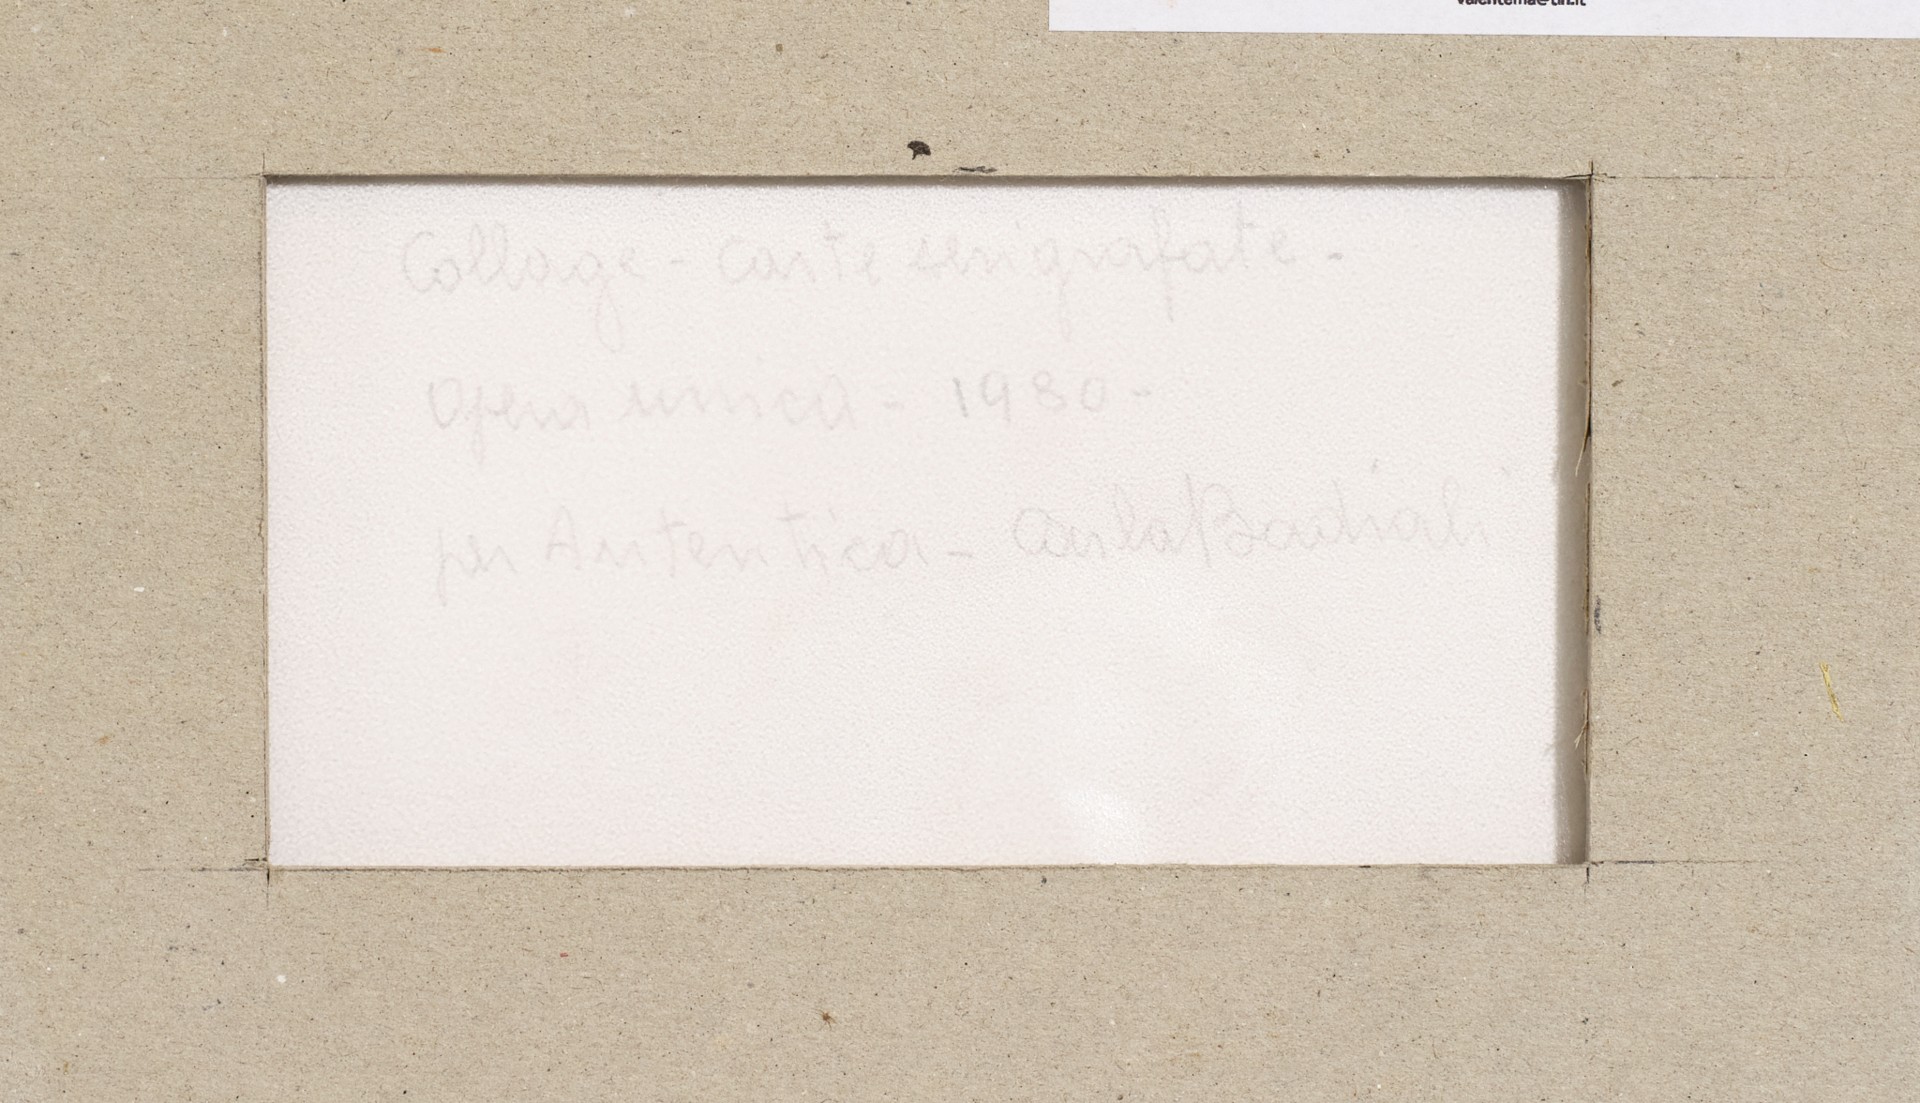 Collage - Carte serigrafate -
Opera unica - 1980 -
per Autentica - Carla Badiali